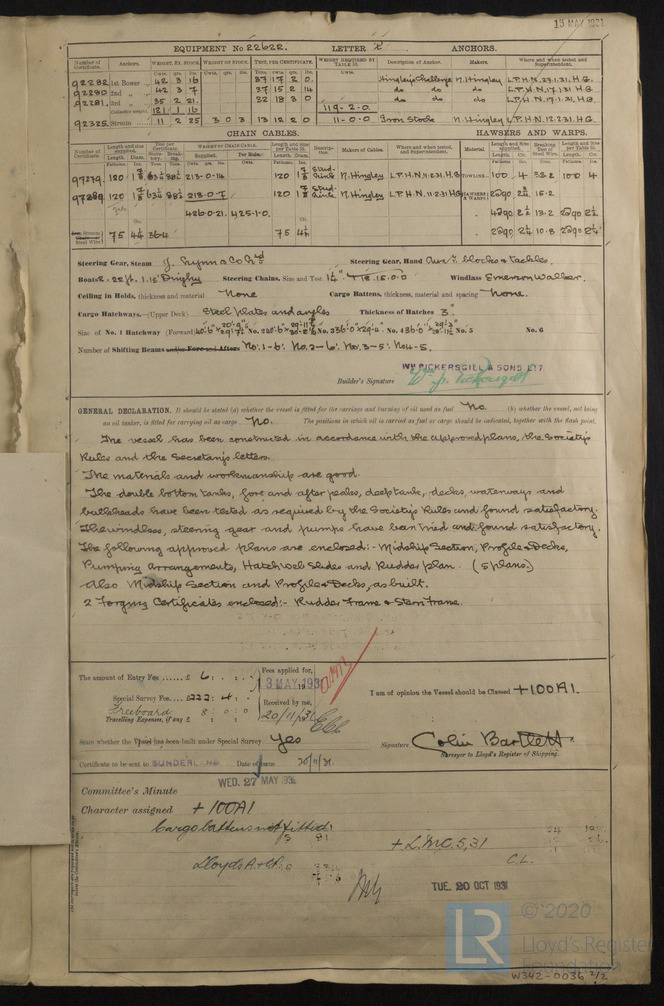 13 MAY 1931
EQUIPMENT No 22622. LETTER X ANCHORS.
Number of Certificate. Anchors. WEIGHT, EX. STOCK. WEIGHT OF STOCK. TEST, PER CERTIFICATE. WEIGHT REQUIRED BY TABLE 31. Description of Anchor. Makers. Where and when tested and Superintendent.
92282 1st Bower 42 3 16 37 17 2 0 N. Hingley L.P.H.N. 27.1.31. H.G.
92280 2nd 42 3 7 37 15 2 14 do do L.P.H.N. 17.1.31 H.G.
92281 3rd 35 2 21 32 18 3 0 do do L.P.H.N. 17.1.31 H.G.
Collective weight 121 1 16 119-2-0
92325 Stream 11 2 25 3 0 3 13 12 2 0 11-0-0 Iron Stock N. Hingley L.P.H.N. 12.2.31. H.G.
CHAIN CABLES. HAWSERS AND WARPS.
Number of Certificate. Length and size supplied. Test per Certificate. WEIGHT OF CHAIN CABLE. Length and Size per Table 31. Description. Makers of Cables. Where and when tested, and Superintendent. Material. Length and Size supplied. Breaking Test of Steel Wire. Length and Size per Table 31.
97279 120 213-0-14 120 Stud Link N. Hingley L.P.H.N. 11.2.31 H.G. TOWLINE 100 4 33.2 100 4
97289 120 213-0-7 120 Stud Link N. Hingley L.P.H.N. 11.2.31 H.G. HAWSERS & WARPS 2@90 15.2
426-0-21 425-1-0 4@90 2½ 13.2 2@90 2½
Steel Wire 75 4¼ 36.4 75 4¼ 2@90 2¼ 10.8 2@90 2¼
Steering Gear, Steam J. Lynn & Co Ltd Steering Gear, Hand Aux: blocks & tackles.
Boats 2. 22ft. 1. 15' Dinghy Steering Chains, Size and Test 1¼" T18.15.0.0 Windlass Emerson Walker.
Ceiling in Holds, thickness and material None Cargo Battens, thickness, material and spacing None.
Cargo Hatchways.—(Upper Deck) Steel plates and angles Thickness of Hatches 3"
Size of No. 1 Hatchway (Forward) No. 2 No. 3 No. 4 No. 5 No. 6
Number of Shifting Beams and/or Fore and Afters No: 1-6: No. 2-6: No. 3-5: No 4-5.
WM PICKERSGILL & SONS LTD.
Builder's Signature Wm J. Pickersgill
GENERAL DECLARATION. It should be stated (a) whether the vessel is fitted for the carriage and burning of oil used as fuel No. (b) whether the vessel, not being
an oil tanker, is fitted for carrying oil as cargo No. The positions in which oil is carried as fuel or cargo should be indicated, together with the flash point.
The vessel has been constructed in accordance with the approved plans, the Society's
Rules and the Secretary's letters.
The materials and workmanship are good.
The double bottom tanks, fore and after peaks, deep tank, decks, waterways and
bulkheads have been tested as required by the Society's Rules and found satisfactory.
The windlass, steering gear and pumps have been tried and found satisfactory.
The following approved plans are enclosed:- Midship Section, Profile & Decks,
Pumping arrangements, Hatch Web Slides and Rudder plan. (5 plans.)
Also Midship Section and Profile & Decks, as built.
2 Forging Certificates enclosed:- Rudder Frame & Stern Frame.
The amount of Entry Fee £ 6 : . : . Fees applied for, 13 MAY 1931
Special Survey Fee £222 : 4 : . Received by me, I am of opinion the Vessel should be Classed +100A1.
Freeboard 8 : 0 : 0 20/11/31
Travelling Expenses, if any £
State whether the Vessel has been built under Special Survey Yes Signature Colin Bartlett
Surveyor to Lloyd's Register of Shipping.
Certificate to be sent to SUNDERLAND Date of issue 20/11/31.
Committee's Minute WED. 27 MAY 1931
Character assigned + 100A1
Cargo battens not fitted
5 31
+ L.M.C. 5,31
Lloyds A & CP. C.L.
TUE. 20 OCT 1931
LR © 2020
Lloyd's Register
Foundation
W342-0036 2/2